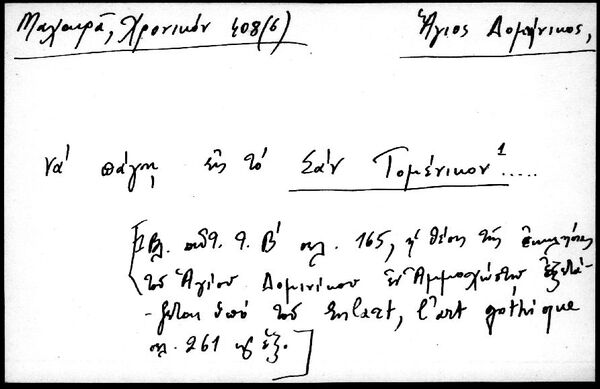 Μαχαιρᾶ, Χρονικόν 408(6) Ἅγιος Δομίνικος,
νά πάγῃ εἰς τό Σάν Τομένικον¹.....
[1 Βλ. αὐτ. τ. Β' σελ. 165, ἡ θέσις τῆς ἐκκλησίας
τοῦ Ἁγίου Δομινίκου ἐν Ἀμμοχώστῳ ἐξετά-
ζεται ὑπό τοῦ Enlart, l'art gothique
σελ. 261 κἑξ.]